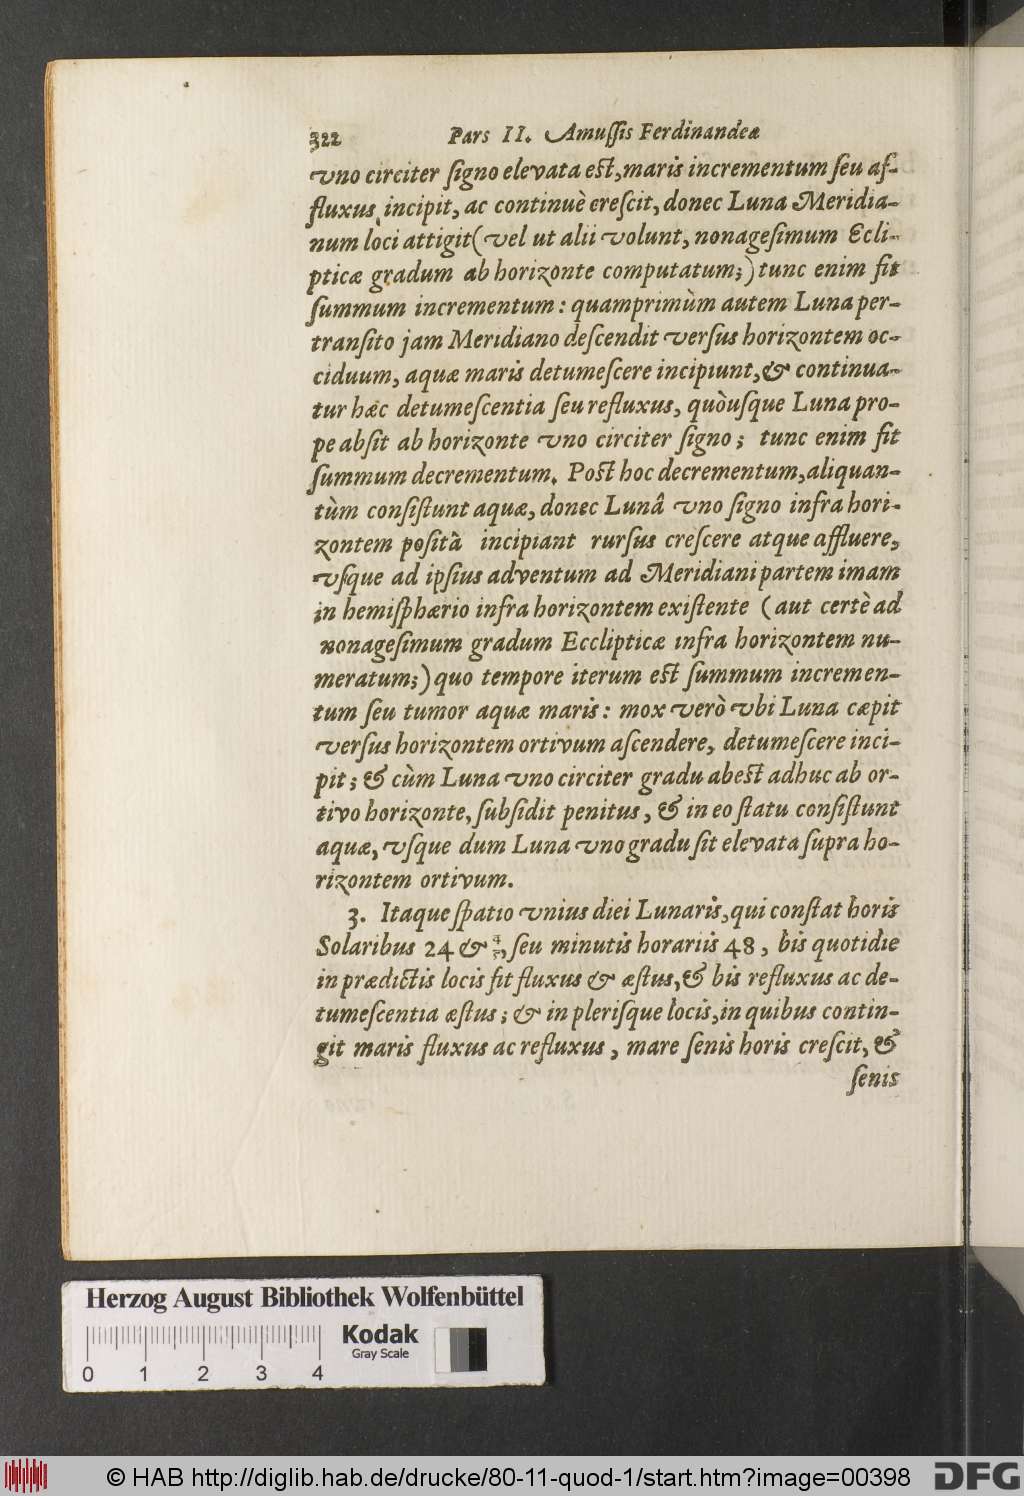 322 Pars II. Amuſſis Ferdinandeæ
vno circiter ſigno elevata eſt, maris incrementum ſeu af-
fluxus incipit, ac continuè creſcit, donec Luna Meridia-
num loci attigit (vel ut alii volunt, nonageſimum Ecli-
pticæ gradum ab horizonte computatum;) tunc enim fit
ſummum incrementum: quamprimùm autem Luna per-
tranſito jam Meridiano deſcendit verſus horizontem oc-
ciduum, aquæ maris detumeſcere incipiunt, & continua-
tur hæc detumeſcentia ſeu refluxus, quòuſque Luna pro-
pe abſit ab horizonte vno circiter ſigno; tunc enim fit
ſummum decrementum. Poſt hoc decrementum, aliquan-
tùm conſiſtunt aquæ, donec Lunâ vno ſigno infra hori-
zontem poſità incipiant rurſus creſcere atque affluere,
vſque ad ipſius adventum ad Meridiani partem imam
in hemiſphærio infra horizontem exiſtente (aut certè ad
nonageſimum gradum Ecclipticæ infra horizontem nu-
meratum;) quo tempore iterum eſt ſummum incremen-
tum ſeu tumor aquæ maris: mox verò vbi Luna cæpit
verſus horizontem ortivum aſcendere, detumeſcere inci-
pit; & cùm Luna vno circiter gradu abeſt adhuc ab or-
tivo horizonte, ſubſidit penitus, & in eo ſtatu conſiſtunt
aquæ, vſque dum Luna vno gradu ſit elevata ſupra ho-
rizontem ortivum.
3. Itaque ſpatio vnius diei Lunaris, qui conſtat horis
Solaribus 24 & 4/5, ſeu minutis horariis 48, bis quotidie
in prædictis locis fit fluxus & æſtus, & bis refluxus ac de-
tumeſcentia æſtus; & in pleriſque locis, in quibus contin-
git maris fluxus ac refluxus, mare ſenis horis creſcit, &
ſenis
Herzog August Bibliothek Wolfenbüttel
Kodak
Gray Scale
0 1 2 3 4
© HAB http://diglib.hab.de/drucke/80-11-quod-1/start.htm?image=00398
DFG